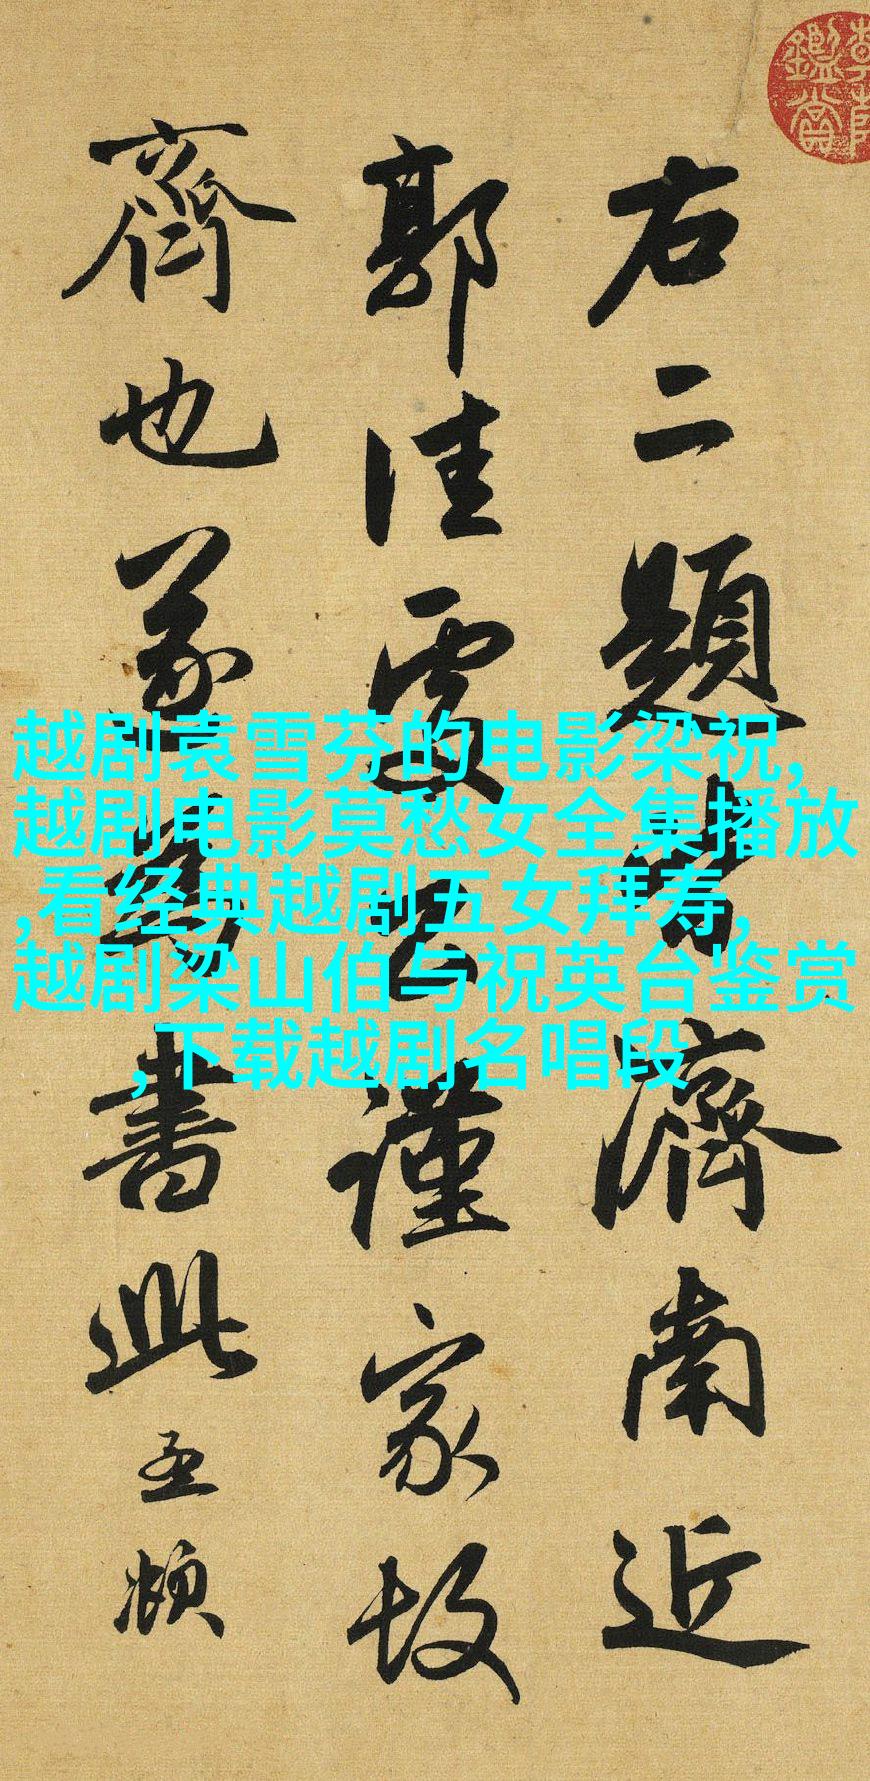 右二題皆濟南近
郭佳處公謹家故
齊也遂為書此孟頫
越剧袁雪芬的电影梁祝,
越剧电影莫愁女全集播放
,看经典越剧五女拜寿,
越剧梁山伯与祝英台鉴赏
,下载越剧名唱段